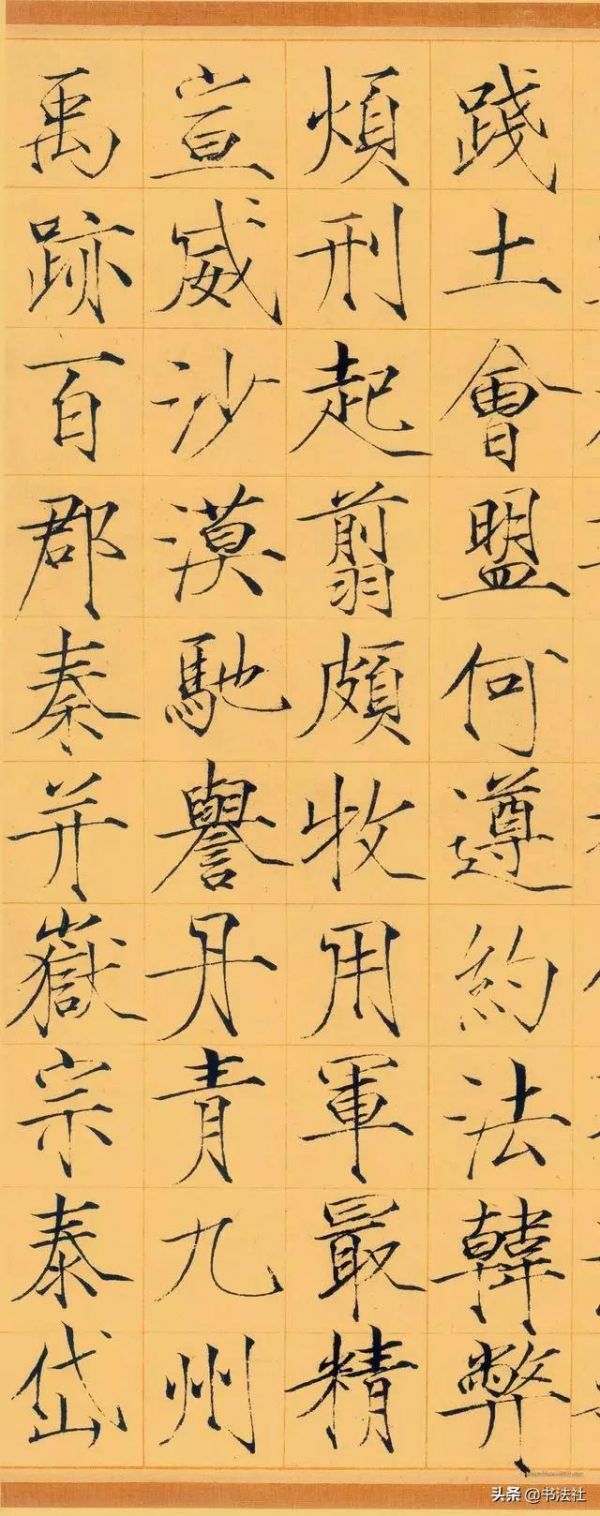 踐土會盟何遵約法韓弊
煩刑起翦頗牧用軍最精
宣威沙漠馳譽丹青九州
禹跡百郡秦并嶽宗泰岱
头条 @书法社